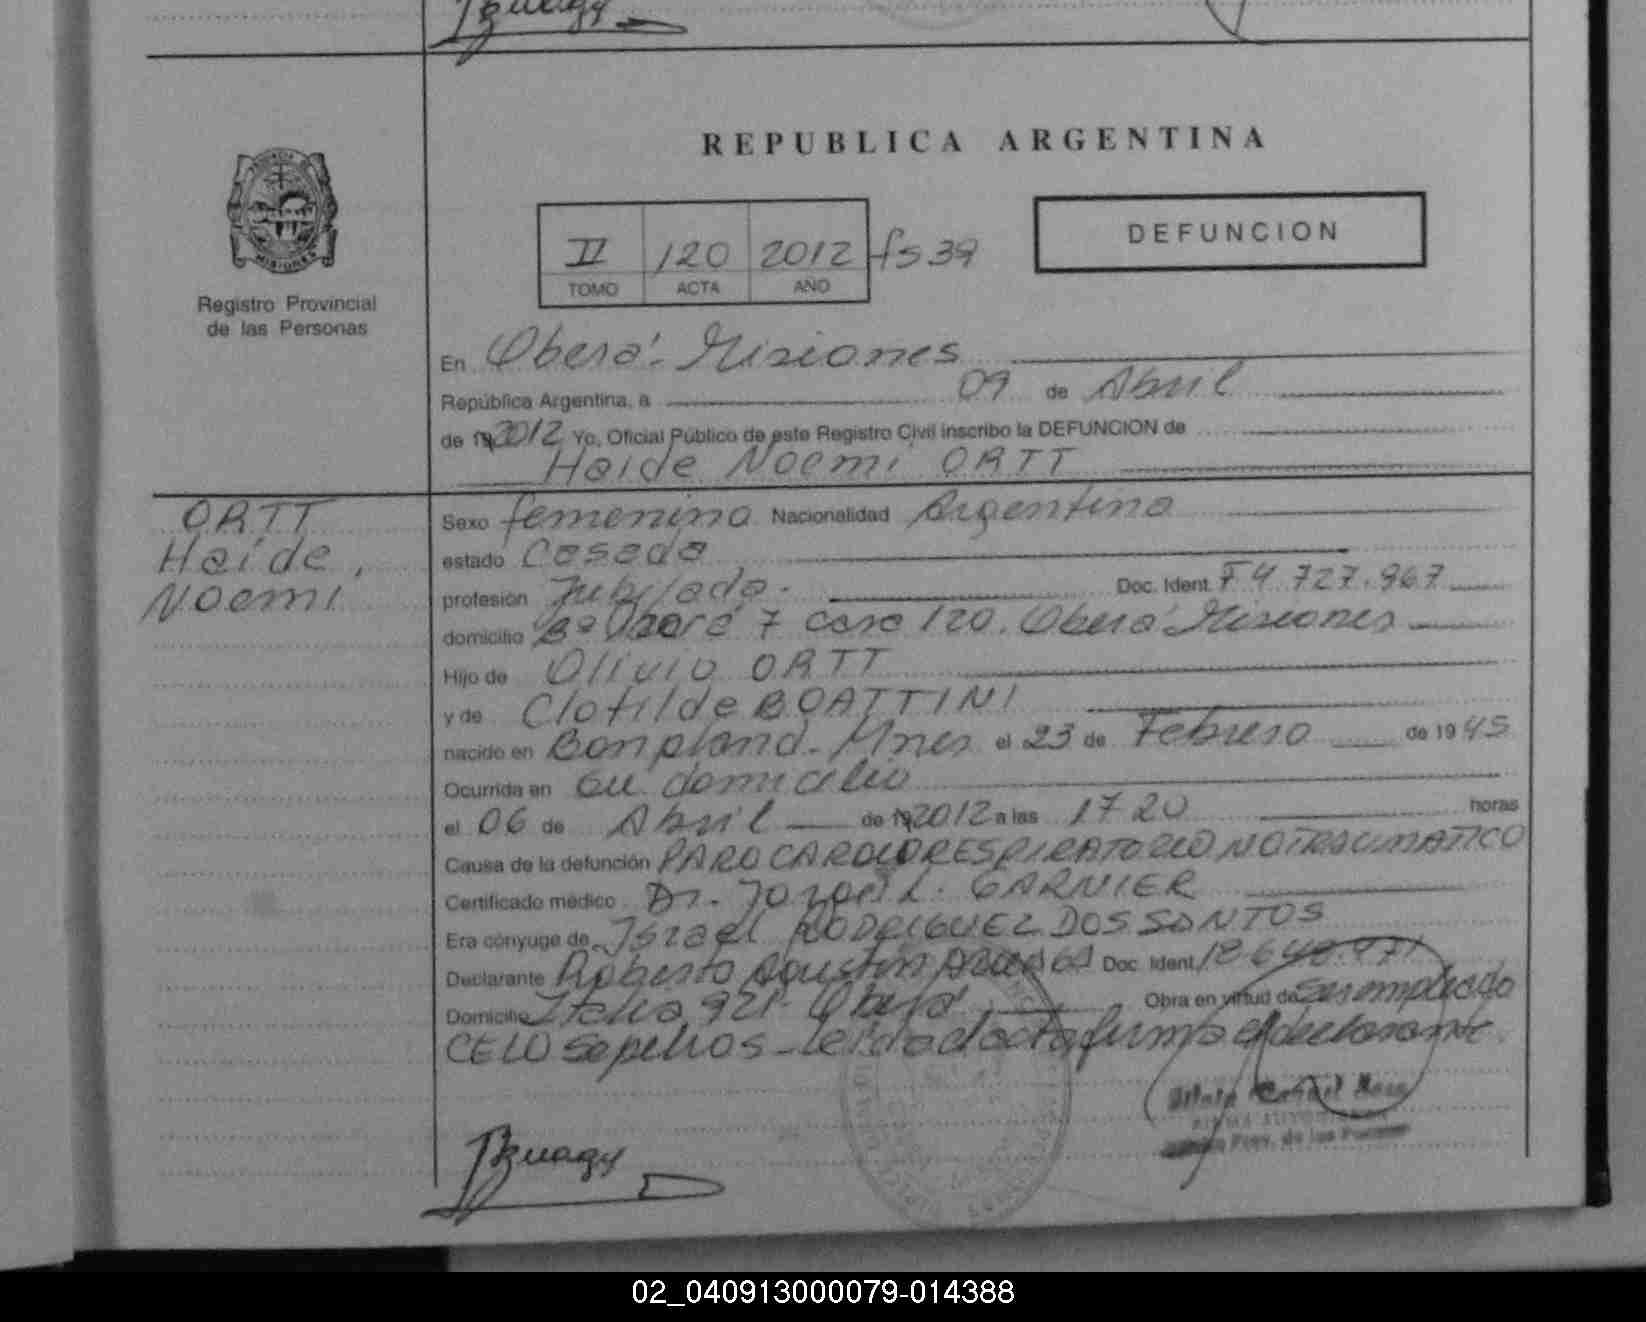 REPUBLICA ARGENTINA
II 120 2012 fs 39
TOMO ACTA AÑO
DEFUNCION
MISIONES
Registro Provincial
de las Personas
En Oberá - Misiones
República Argentina, a 09 de Abril
de 19 2012 Yo, Oficial Público de este Registro Civil inscribo la DEFUNCION de
Haide Noemi ORTT
ORTT
Haide,
Noemi
Sexo femenino Nacionalidad Argentina
estado Casada
profesión Jubilada. Doc. Ident. F 4.727.967
domicilio Bº 7 casa 120. Oberá Misiones
Hijo de Olivio ORTT
y de Clotilde BOATTINI
nacido en Bonpland - Mnes el 23 de Febrero de 1945
Ocurrida en su domicilio
el 06 de Abril de 19 2012 a las 17 20 horas
Causa de la defunción PARO CARDIORESPIRATORIO NO TRAUMATICO
Certificado médico Dr. L. GARNIER
Era cónyuge de Israel RODRIGUEZ DOS SANTOS
Declarante Roberto Agustin Doc. Ident.
Domicilio Italia 921 - Oberá Obra en virtud de ser empleado
CELO Sepelios - leida el acta firma el declarante
Prov. de las
02_040913000079-014388